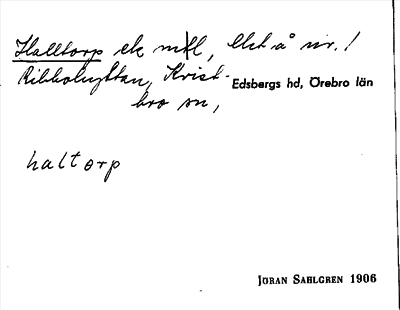 Halltorp ek mtl, ekt å nr. 1
Ribbohyttan, Krist-
bro sn, Edsbergs hd, Örebro län
haltorp
JÖRAN SAHLGREN 1906